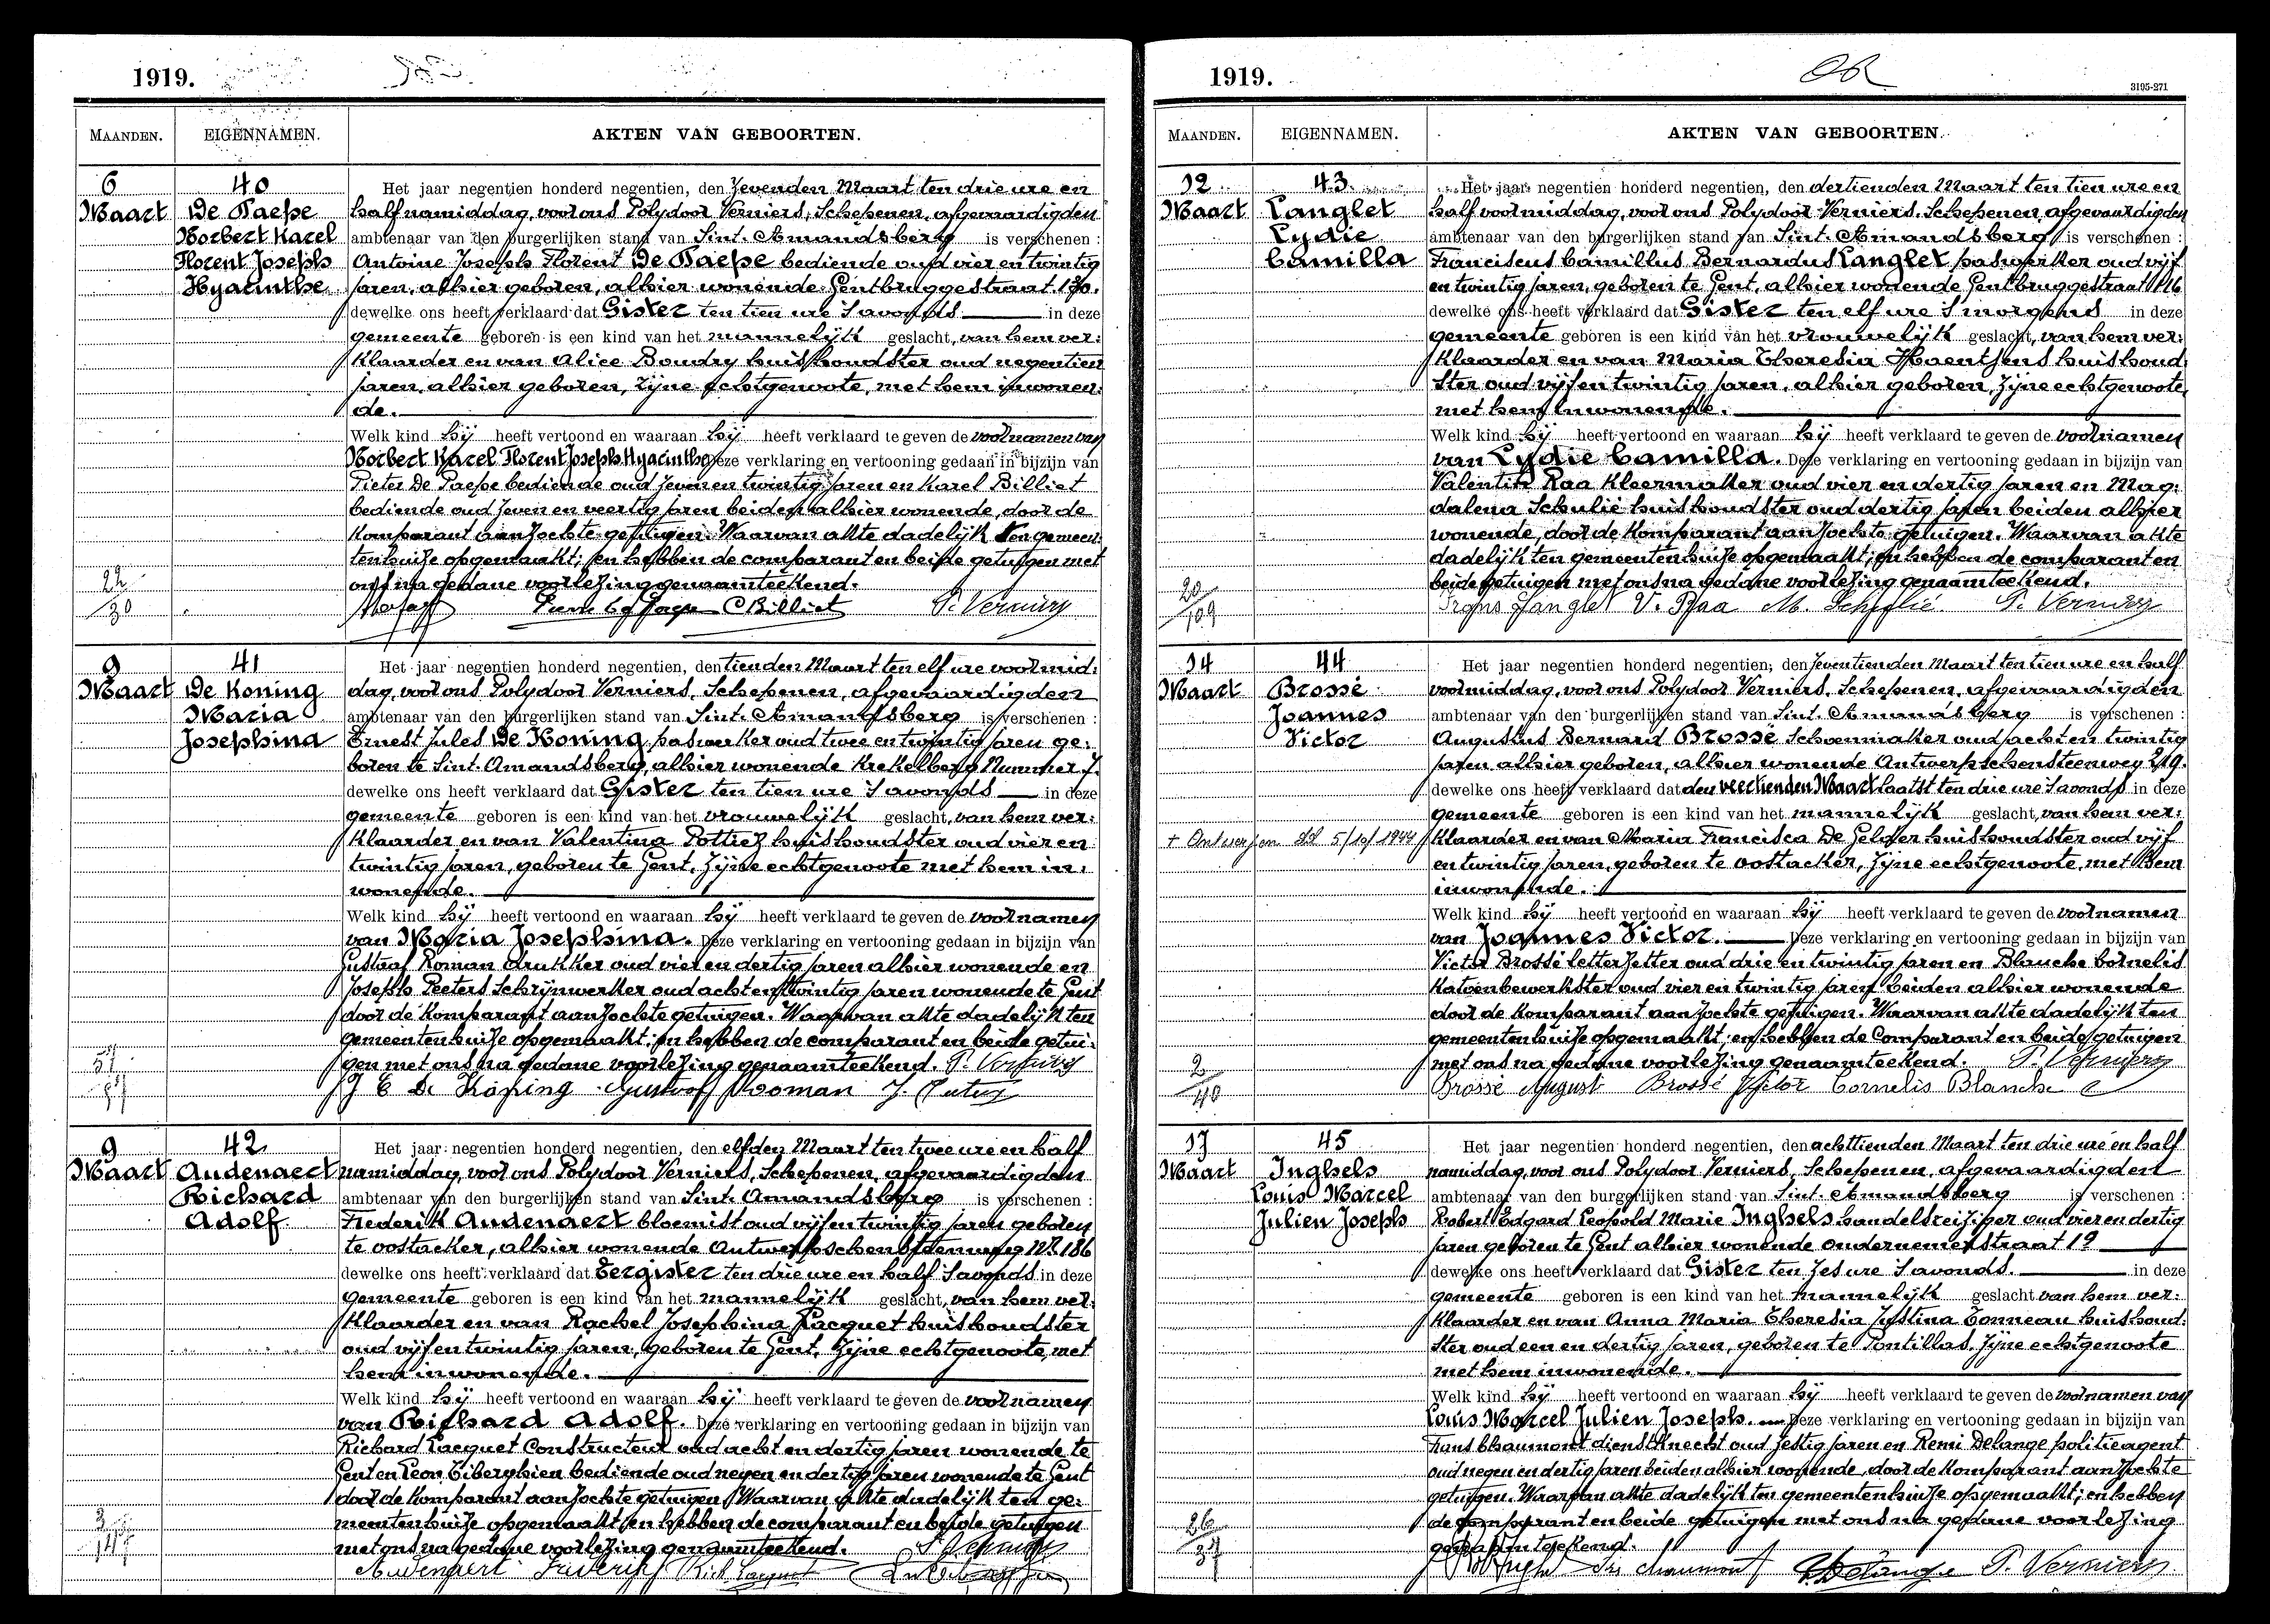 1919.
MAANDEN. EIGENNAMEN. AKTEN VAN GEBOORTEN.
6 40 Het jaar negentien honderd negentien, den zevenden Maart ten drie ure en
Maart De Paepe half namiddag, voor ons Polydoor Verniers, Schepenen, afgevaardigden
Norbert Karel ambtenaar van den burgerlijken stand van Sint-Amandsberg is verschenen :
Florent Joseph Antoine Joseph Florent De Paepe bediende oud vier en twintig
Hyacinthe jaren, alhier geboren, alhier wonende Gentbruggestraat 170.
dewelke ons heeft verklaard dat Gister ten tien ure 's avonds in deze
gemeente geboren is een kind van het mannelijk geslacht, van hem ver:
klaarder en van Alice Boudry huishoudster oud negentien
jaren, alhier geboren, zijne echtgenoote, met hem inwonen:
de.
Welk kind hij heeft vertoond en waaraan hij heeft verklaard te geven de voornamen van
Norbert Karel Florent Joseph Hyacinthe Deze verklaring en vertooning gedaan in bijzijn van
Pieter De Paepe bediende oud zeven en twintig jaren en Karel Billiet
bediende oud zeven en veertig jaren beiden alhier wonende, door de
komparant aanzochte getuigen. Waarvan akte dadelijk ten gemeen:
tenhuize opgemaakt; en hebben de comparant en beide getuigen met
ons na gedane voorlezing genaamteekend.
22/30 C Billiet P. Verniers
9 41 Het jaar negentien honderd negentien, den tienden Maart ten elf ure voormid:
Maart De Koning dag, voor ons Polydoor Verniers, Schepenen, afgevaardigden
Maria ambtenaar van den burgerlijken stand van Sint-Amandsberg is verschenen :
Josephina Ernest Jules De Koning, paswerker oud twee en twintig jaren ge:
boren te Sint-Amandsberg, alhier wonende Krekelberg Nummer 7.
dewelke ons heeft verklaard dat Gister ten tien ure 's avonds in deze
gemeente geboren is een kind van het vrouwelijk geslacht, van hem ver:
klaarder en van Valentina Pottiez huishoudster oud vier en
twintig jaren, geboren te Gent, zijne echtgenoote met hem in:
wonende.
Welk kind hij heeft vertoond en waaraan hij heeft verklaard te geven de voornamen
van Maria Josephina. Deze verklaring en vertooning gedaan in bijzijn van
Gustaaf Roman drukker oud vier en dertig jaren alhier wonende en
Joseph Peeters Schrijnwerker oud acht en twintig jaren wonende te Gent
door de komparant aanzochte getuigen. Waarvan akte dadelijk ten
gemeentenhuize opgemaakt; en hebben de comparant en beide getui:
gen met ons na gedane voorlezing genaamteekend. P. Verniers
J E De Koning Gustaaf Rooman J. Peeters
9 42 Het jaar negentien honderd negentien, den elfden Maart ten twee ure en half
Maart Audenaert namiddag, voor ons Polydoor Verniers, Schepenen, afgevaardigden
Richard ambtenaar van den burgerlijken stand van Sint-Amandsberg is verschenen :
Adolf Frederik Audenaert bloemist oud vijf en twintig jaren geboren
te Oostacker, alhier wonende Antwerpschensteenweg Nr. 186
dewelke ons heeft verklaard dat Eergister ten drie ure en half 's avonds in deze
gemeente geboren is een kind van het mannelijk geslacht, van hem ver:
klaarder en van Rachel Josephina Lacquet huishoudster
oud vijf en twintig jaren, geboren te Gent, zijne echtgenoote, met
hem inwonende.
Welk kind hij heeft vertoond en waaraan hij heeft verklaard te geven de voornamen
van Richard Adolf. Deze verklaring en vertooning gedaan in bijzijn van
Richard Lacquet Constructeur oud acht en dertig jaren wonende te
Gent en Leon Tiberghien bediende oud negen en dertig jaren wonende te Gent
door de komparant aanzochte getuigen. Waarvan akte dadelijk ten ge:
meentenhuize opgemaakt en hebben de comparant en beide getuigen
met ons na gedane voorlezing genaamteekend. P. Verniers
Audenaert Frederik Rich Lacquet
1919.
3195-271
MAANDEN. EIGENNAMEN. AKTEN VAN GEBOORTEN.
12 43 Het jaar negentien honderd negentien, den dertienden Maart ten tien ure en
Maart Langlet half voormiddag, voor ons Polydoor Verniers, Schepenen, afgevaardigden
Lydie ambtenaar van den burgerlijken stand van Sint-Amandsberg is verschenen :
Camilla Franciscus Camillus Bernardus Langlet paswerker oud vijf
en twintig jaren, geboren te Gent, alhier wonende Gentbruggestraat 116
dewelke ons heeft verklaard dat Gister ten elf ure 's morgens in deze
gemeente geboren is een kind van het vrouwelijk geslacht, van hem ver:
klaarder en van Maria Theresia Haentjens huishoud:
ster oud vijf en twintig jaren, alhier geboren, zijne echtgenoote,
met hem inwonende.
Welk kind hij heeft vertoond en waaraan hij heeft verklaard te geven de voornamen
van Lydie Camilla. Deze verklaring en vertooning gedaan in bijzijn van
Valentin Raa Kleermaker oud vier en dertig jaren en Mag:
dalena Schulié huishoudster oud dertig jaren beiden alhier
wonende, door de komparant aanzochte getuigen. Waarvan akte
dadelijk ten gemeentenhuize opgemaakt; en hebben de comparant en
beide getuigen met ons na gedane voorlezing genaamteekend.
20/109 Frans Langlet V. Raa M. Schulié P. Verniers
14 44 Het jaar negentien honderd negentien, den zeventienden Maart ten tien ure en half
Maart Brossé voormiddag, voor ons Polydoor Verniers, Schepenen, afgevaardigden
Joannes ambtenaar van den burgerlijken stand van Sint-Amandsberg is verschenen :
Victor Augustus Bernard Brossé Schoenmaker oud acht en twintig
jaren alhier geboren, alhier wonende Antwerpschensteenweg 219.
dewelke ons heeft verklaard dat den veertienden Maart laatst ten drie ure 's avonds in deze
gemeente geboren is een kind van het mannelijk geslacht, van hem ver:
+ Antwerpen 5/10/1944 klaarder en van Maria Francisca De Gelder huishoudster oud vijf
en twintig jaren, geboren te Oostacker, zijne echtgenoote, met hem
inwonende.
Welk kind hij heeft vertoond en waaraan hij heeft verklaard te geven de voornamen
van Joannes Victor. Deze verklaring en vertooning gedaan in bijzijn van
Victor Brossé letterzetter oud drie en twintig jaren en Blanche Cornelis
katoenbewerkster oud vier en twintig jaren beiden alhier wonende
door de komparant aanzochte getuigen. Waarvan akte dadelijk ten
gemeentenhuize opgemaakt; en hebben de comparant en beide getuigen
met ons na gedane voorlezing genaamteekend. P. Verniers
2/40 Brossé August Brossé Victor Cornelis Blanche
17 45 Het jaar negentien honderd negentien, den achttienden Maart ten drie ure en half
Maart Inghels namiddag, voor ons Polydoor Verniers, Schepenen, afgevaardigden
Louis Marcel ambtenaar van den burgerlijken stand van Sint-Amandsberg is verschenen :
Julien Joseph Robert Edgard Leopold Marie Inghels handelsreiziger oud vier en dertig
jaren geboren te Gent alhier wonende Ondernemerstraat 19
dewelke ons heeft verklaard dat Gister ten zes ure 's avonds. in deze
gemeente geboren is een kind van het mannelijk geslacht van hem ver:
klaarder en van Anna Maria Theresia Justina Tonneau huishoud:
ster oud een en dertig jaren, geboren te Pontillas, zijne echtgenoote
met hem inwonende.
Welk kind hij heeft vertoond en waaraan hij heeft verklaard te geven de voornamen van
Louis Marcel Julien Joseph. Deze verklaring en vertooning gedaan in bijzijn van
Frans Chaumont dienstknecht oud zestig jaren en Remi Delange politieagent
oud negen en dertig jaren beiden alhier wonende, door de komparant aanzochte
getuigen. Waarvan akte dadelijk ten gemeentenhuize opgemaakt; en hebben
de comparant en beide getuigen met ons na gedane voorlezing
genaamteekend.
26/37 Chaumont Delange P. Verniers